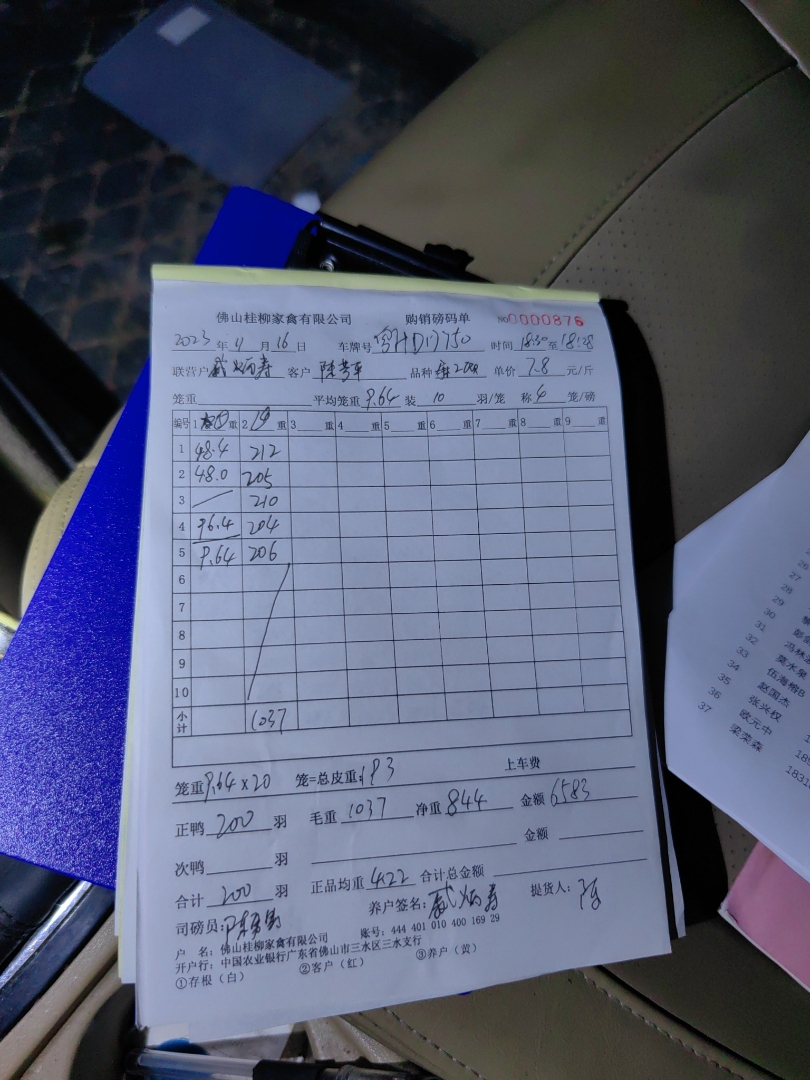 佛山桂柳家禽有限公司 购销磅码单 No 0000876
2023 年 4 月 16 日 车牌号 时间 18:30 至 18:28
联营户 客户 品种 单价 7.8 元/斤
笼重 平均笼重 9.64 装 10 羽/笼 称 4 笼/磅
编号 1 重 2 19 重 3 重 4 重 5 重 6 重 7 重 8 重 9 重
1 48.4 212
2 48.0 205
3 210
4 96.4 204
5 9.64 206
6
7
8
9
10
小计 1037
笼重 9.64 × 20 笼=总皮重 193 上车费
正鸭 200 羽 毛重 1037 净重 844 金额 6583
次鸭 羽 金额
合计 200 羽 正品均重 4.22 合计总金额
司磅员: 养户签名: 提货人: 陈
户 名: 佛山桂柳家禽有限公司 账号: 444 401 010 400 169 29
开户行: 中国农业银行广东省佛山市三水区三水支行
①存根(白) ②客户(红) ③养户(黄)
26
27
28
29
30
31
32
33 冯林
34 莫水泉
35 伍海榕B
36 赵国杰
37 张兴权
欧元中
梁栾森